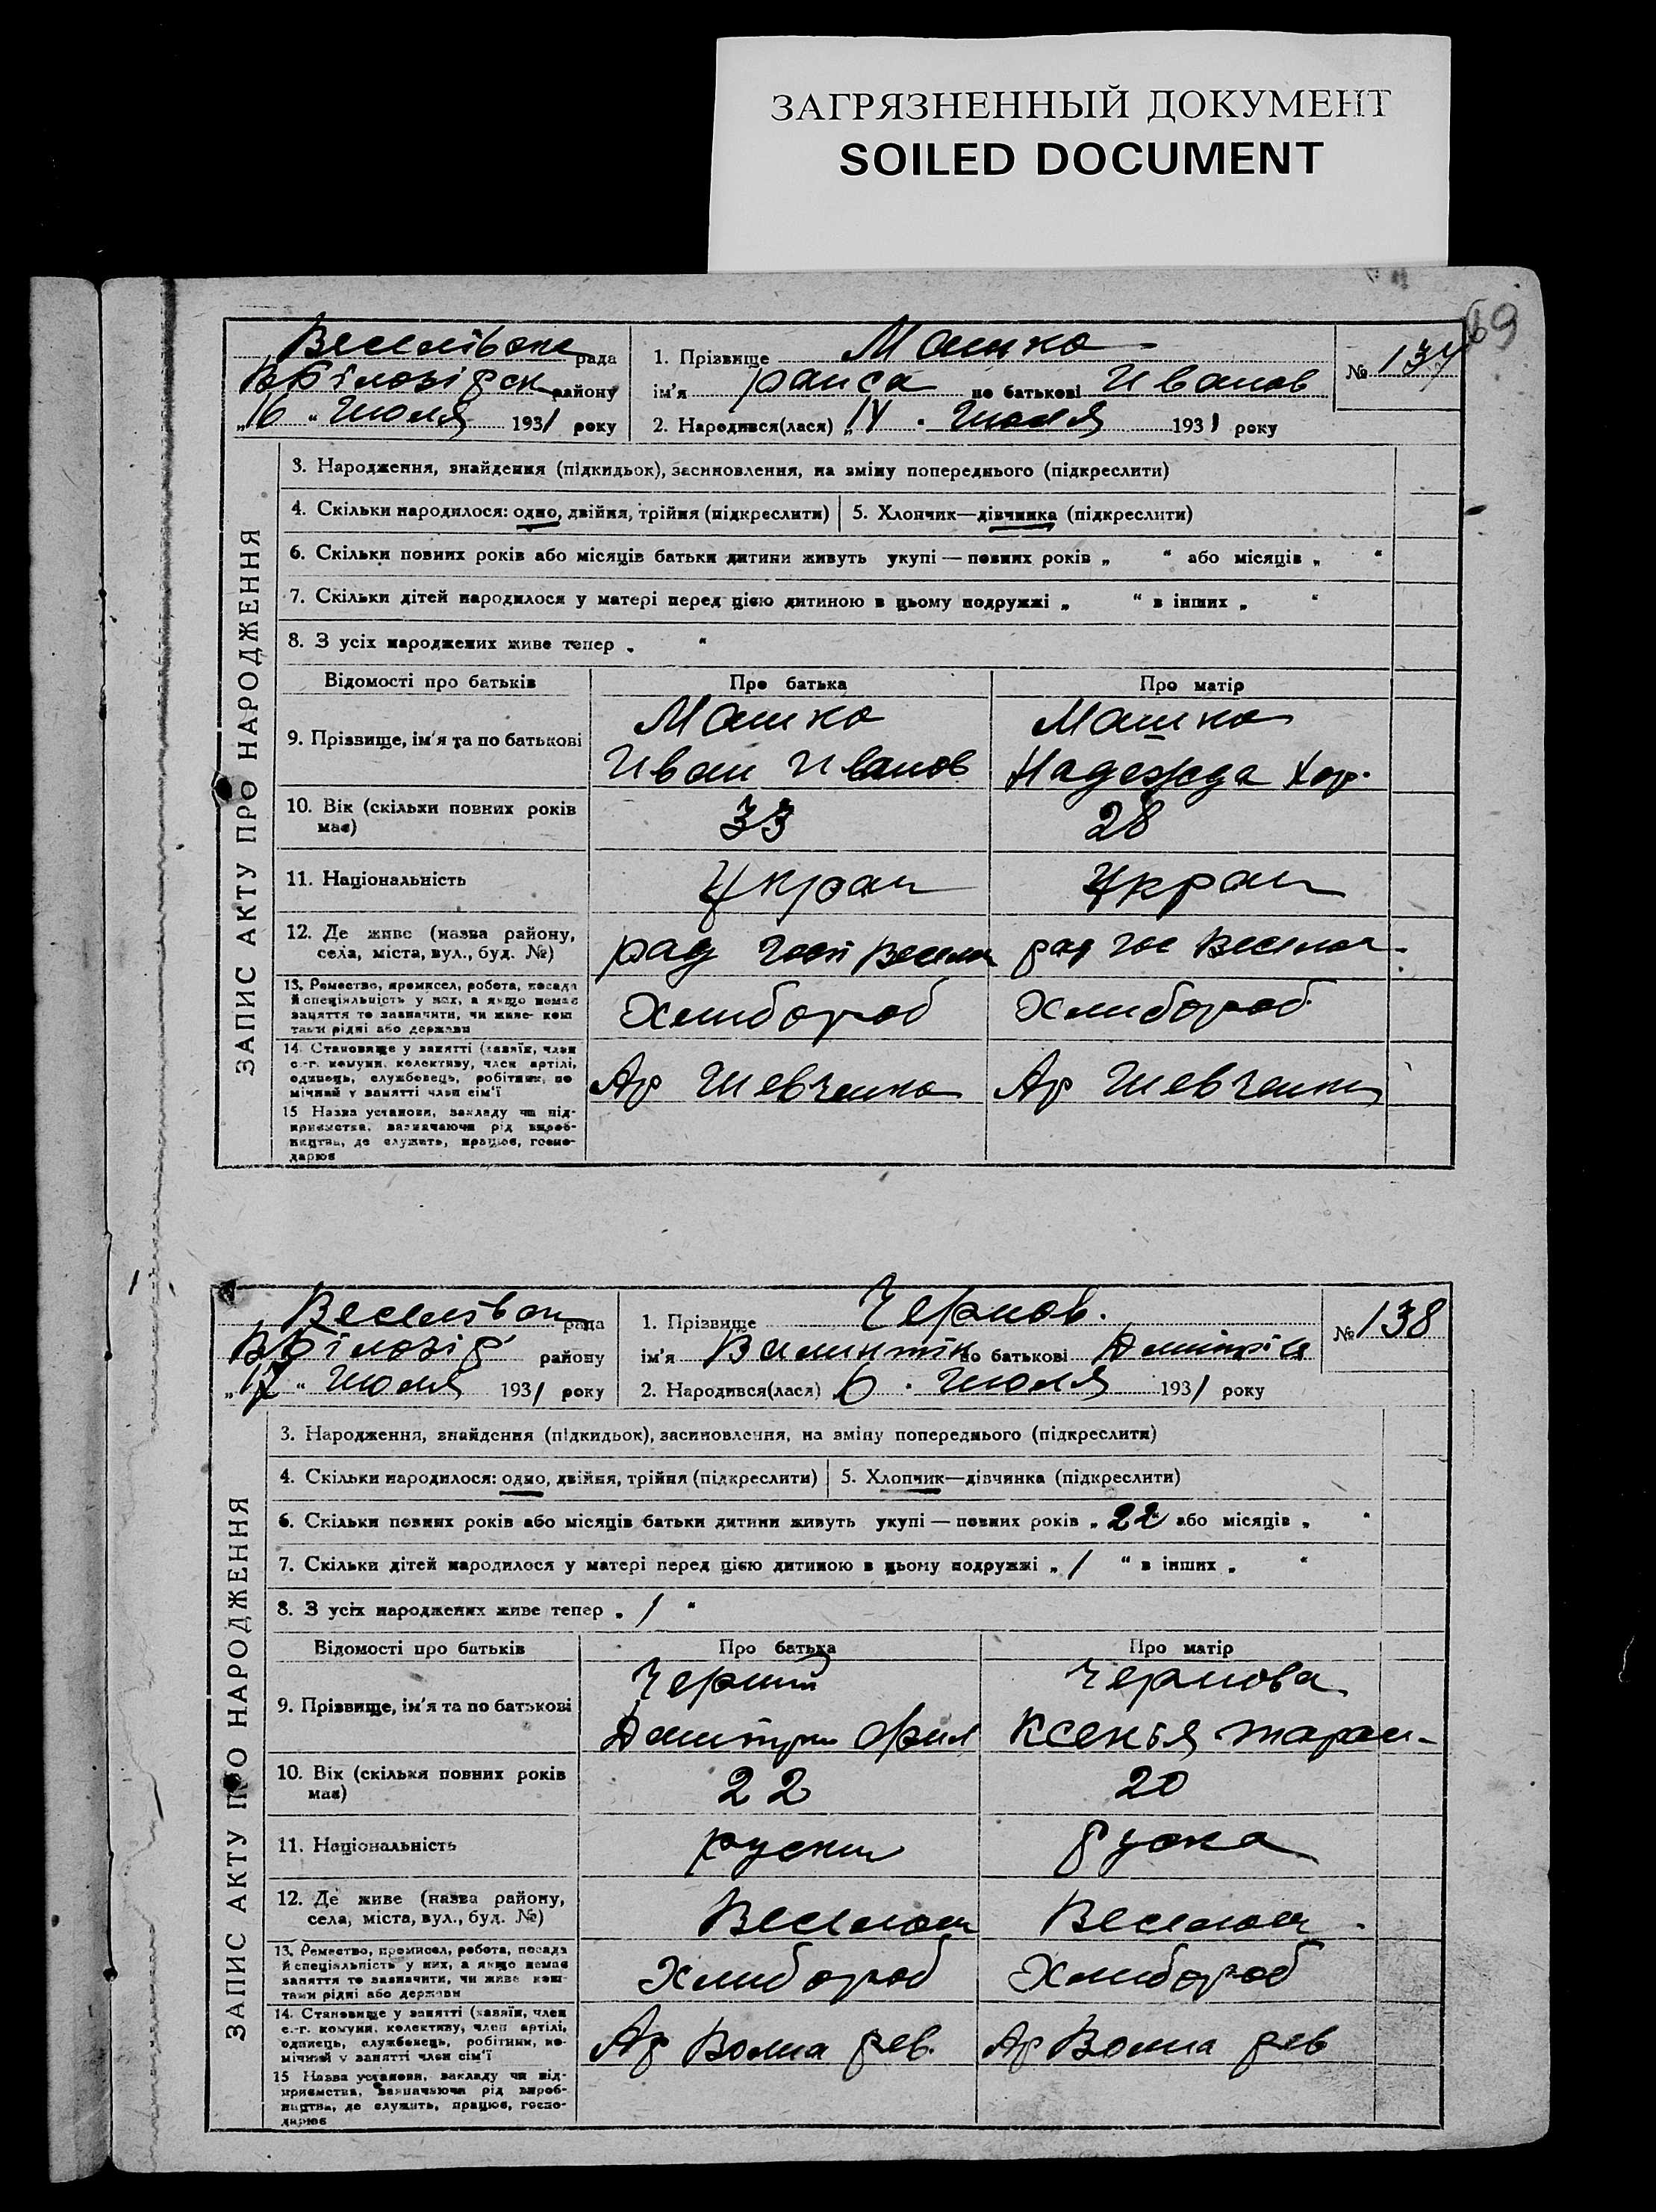 ЗАГРЯЗНЕННЫЙ ДОКУМЕНТ
SOILED DOCUMENT
69
рада
району
„16“ Июля 1931 року
1. Прізвище Машко
ім'я раиса по батькові Иванов
2. Народився(лася) „ Июля 1931 року
№ 137
ЗАПИС АКТУ ПРО НАРОДЖЕННЯ
3. Народження, знайдення (підкидьок), засиновлення, на зміну попереднього (підкреслити)
4. Скільки народилося: одно, двійня, трійня (підкреслити) 5. Хлопчик—дівчинка (підкреслити)
6. Скільки повних років або місяців батьки дитини живуть укупі — повних років „ “ або місяців „ “
7. Скільки дітей народилося у матері перед цією дитиною в цьому подружжі „ “ в інших „ “
8. З усіх народжених живе тепер „ “
Відомості про батьків Про батька Про матір
9. Прізвище, ім'я та по батькові
Машко Машко
Иван Иванов Надежда Хар.
10. Вік (скільки повних років має) 33 28
11. Національність Украи Украи
12. Де живе (назва району, села, міста, вул., буд. №)
13. Ремество, промисел, робота, посада й спеціяльність у них, а якщо немає заняття то зазначити, чи живе кош тами рідні або держави Хлибороб Хлибороб
14. Становище у занятті (хазяїн, член с.-г. комуни, колективу, член артілі, одинець, службовець, робітник, по мічний у занятті член сім'ї Ар Шевченка Ар Шевченки
15 Назва установи, закладу чи під- приємства, зазначаючи рід вироб- ництва, де служить, працює, госпо- дарює
рада
району
„17“ Июля 1931 року
1. Прізвище Чернов.
ім'я Валинтін по батькові
2. Народився(лася) 6. Июля 1931 року
№ 138
ЗАПИС АКТУ ПРО НАРОДЖЕННЯ
3. Народження, знайдення (підкидьок), засиновлення, на зміну попереднього (підкреслити)
4. Скільки народилося: одно, двійня, трійня (підкреслити) 5. Хлопчик—дівчинка (підкреслити)
6. Скільки повних років або місяців батьки дитини живуть укупі — повних років „ “ або місяців „ “
7. Скільки дітей народилося у матері перед цією дитиною в цьому подружжі „ 1 “ в інших „ “
8. З усіх народжених живе тепер „ 1 “
Відомості про батьків Про батька Про матір
9. Прізвище, ім'я та по батькові
Чернова
Ксенья таран-
10. Вік (скільки повних років має) 22 20
11. Національність руски руска
12. Де живе (назва району, села, міста, вул., буд. №)
13. Ремество, промисел, робота, посада й спеціяльність у них, а якщо немає заняття то зазначити, чи живе кош- тами рідні або держави Хлибороб Хлибороб
14. Становище у занятті (хазяїн, член с.-г. комуни, колективу, член артілі, одинець, службовець, робітник, по- мічний у занятті член сім'ї Ар Волна рев. Ар Волна рев
15 Назва установи, закладу чи під- приємства, зазначаючи рід вироб- ництва, де служить, працює, госпо- дарює